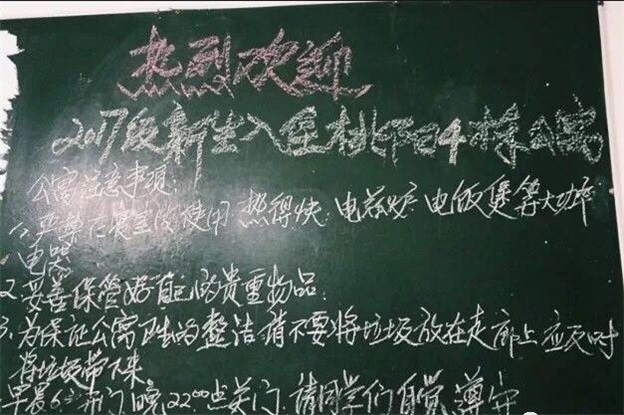 热烈欢迎
2017级新生入住桃阳4栋公寓
公寓注意事项:
1、严禁在寝室内使用热得快、电茲炉、电饭煲等大功率
电器
2、妥善保管好自己的贵重物品:
3、为保证公寓卫生的整洁,请不要将垃圾放在走廊上,应及时
将垃圾带下来
早晨6:00开门,晚22:00点关门,请同学们自觉遵守